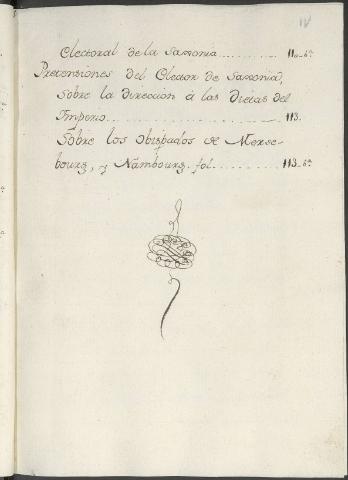 IV
Electoral de la Saxonia ............ 110. bta
Pretensiones del Elector de Saxonia,
Sobre la direccion à las Dietas del
Imperio ........................ 113.
Sobre los Obispados de Merse-
bourg, y Nambourg. fol ............ 113. bta